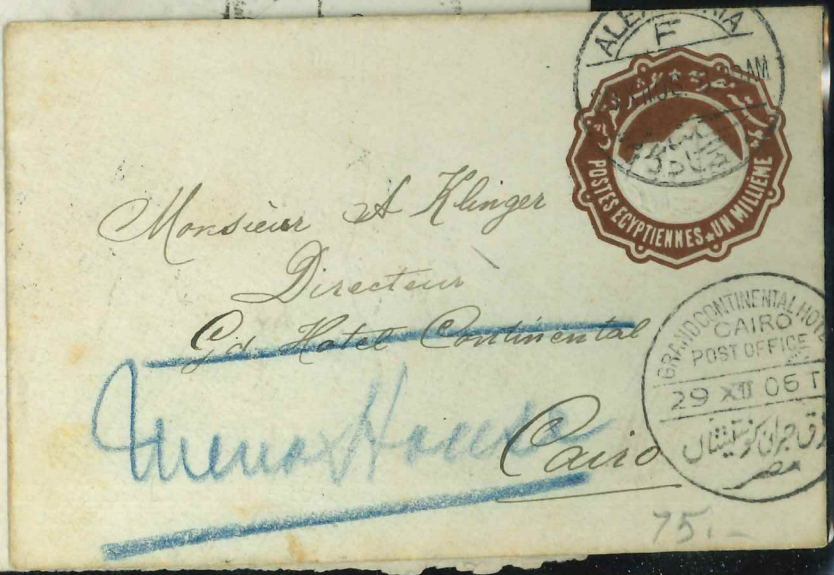 ALEXANDRIA
F
AM
POSTES EGYPTIENNES ★ UN MILLIÈME
Monsieur A Klinger
Directeur
Gd. Hotel Continental
Mena House
Cairo
GRAND CONTINENTAL HOTEL
CAIRO
POST OFFICE
29 XII 06 T
مصر
75.-